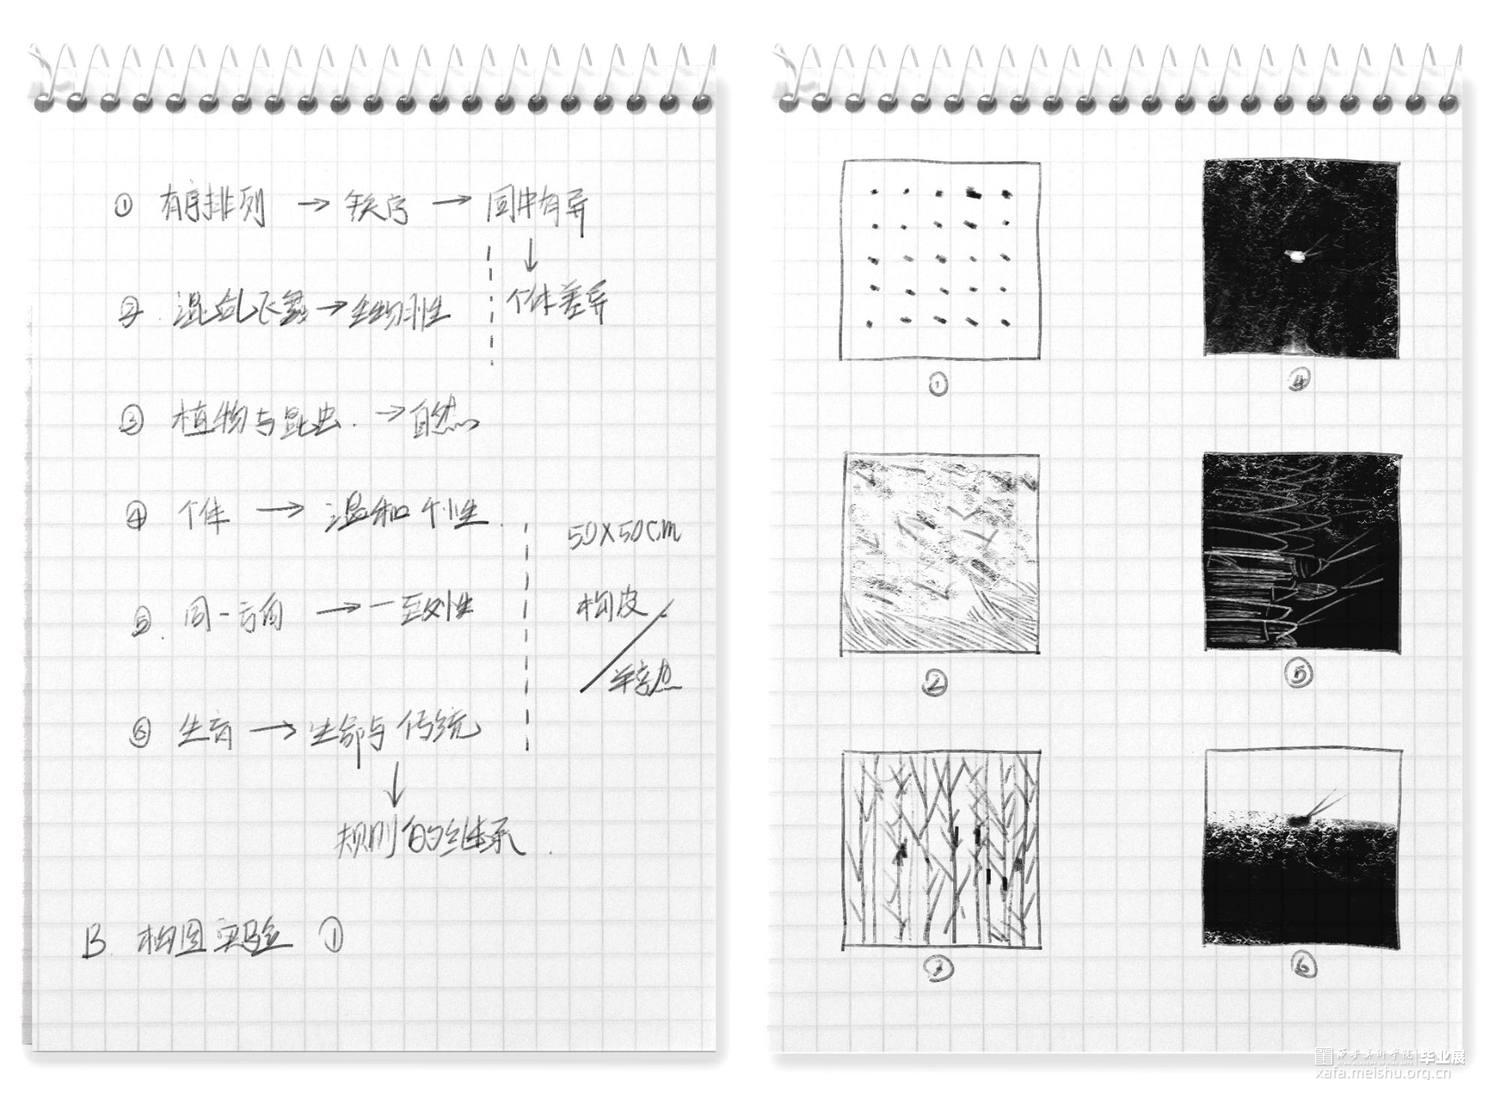 ① 有序排列 → 秩序 → 同中有异
↓
个体差异
② 混乱飞舞 → 生物习性
③ 植物与昆虫. → 自然
④ 个体 → 温和个性
50X50cm
⑤ 同一方向 → 一致性
构皮
⑥ 生育 → 生命与传统
↓
规则的继承.
B 构图实验 ①
①
④
②
⑤
③
⑥
西安美术学院 毕业展
xafa.meishu.org.cn